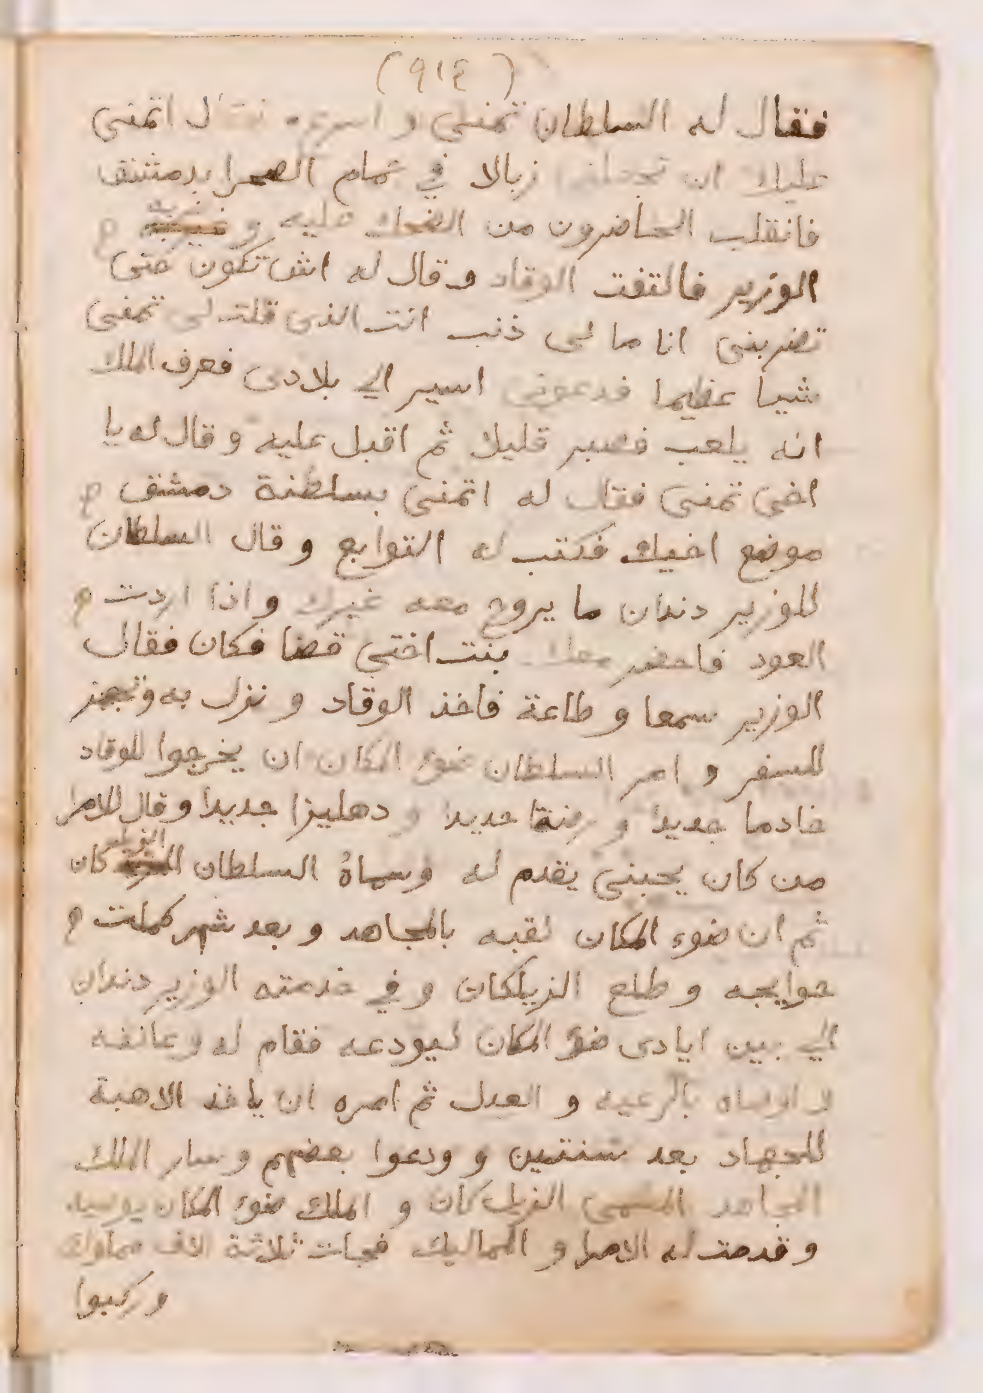 (٩١٤)
فقال له السلطان تمنى و اسرع فقال اتمنى
عليك ان تجعلنى زبالا في حمام الصحرا بدمشق
فانقلب الحاضرون من الضحك عليه و ضربه
الوزير فالتفت الوقاد وقال له اش تكون حتى
تضربنى انا ما لى ذنب انت الذى قلت لى تمنى
شيا عظيما فدعونى اسير الي بلادى فعرف الملك
انه يلعب فصبر قليلا ثم اقبل عليه و قال له يا
اخى تمنى فقال له اتمنى بسلطنة دمشق
موضع اخيك فكتب له التوابع و قال السلطان
للوزير دندان ما يروح معه غيرك و اذا اردت
العود فاحضر معك بنت اختى قضا فكان فقال
الوزير سمعا و طاعة فاخذ الوقاد و نزل به وتجهز
للسفر و امر السلطان ضوء المكان ان يخرجوا للوقاد
خادما جديدا و جديدا و دهليزا جديدا و قال للامرا
من كان يحبنى يقدم له وسماهُ السلطان الزيلكان
ثم ان ضوء المكان لقبه بالمجاهد و بعد شهر كملت
حوايجه و طلع الزيلكان و في خدمته الوزير دندان
الي بين ايادى ضوء المكان ليودعه فقام له وعانقه
و اوصاه بالرعيه و العدل ثم امره ان ياخذ الاهبة
للجهاد بعد سنتين و ودعوا بعضهم و سار الملك
المجاهد المسمى الزيلكان و الملك ضوء المكان يوصيه
و قدمت له الامرا و المماليك فجات ثلاثة الاف مملوك
و ركبوا